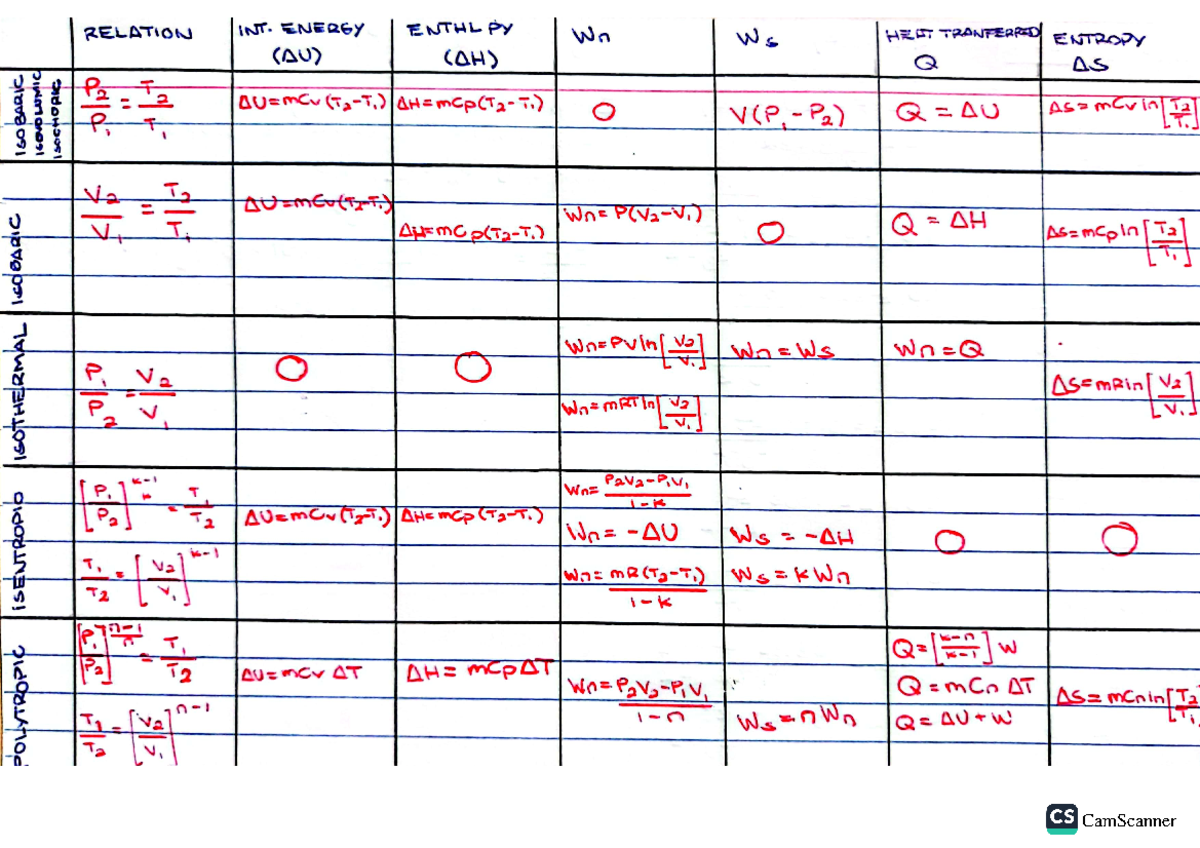 RELATION
INT. ENERGY
(ΔU)
ENTHLPY
(ΔH)
Wn
Ws
HEAT TRANFERRED
Q
ENTROPY
ΔS
ISOBARIC
ISOVOLUMIC
ISOCHORIC
P2/P1 = T2/T1
ΔU=mCv(T2-T1)
ΔH=mCp(T2-T1)
O
V(P1-P2)
Q = ΔU
ΔS=mCv ln[T2/T1]
ISOBARIC
V2/V1 = T2/T1
ΔU=mCv(T2-T1)
ΔH=mCp(T2-T1)
Wn=P(V2-V1)
O
Q = ΔH
ΔS=mCp ln[T2/T1]
ISOTHERMAL
P1/P2 = V2/V1
O
O
Wn=PV ln[V2/V1]
Wn=mRT ln[V2/V1]
Wn=Ws
Wn=Q
ΔS=mRin[V2/V1]
ISENTROPIC
[P1/P2]^(k-1/k) = T1/T2
T1/T2=[V2/V1]^(k-1)
ΔU=mCv(T2-T1)
ΔH=mCp(T2-T1)
Wn=P2V2-P1V1/1-k
Wn= -ΔU
Wn=mR(T2-T1)/1-k
Ws = -ΔH
Ws=kWn
O
O
POLYTROPIC
[P1/P2]^(n-1/n) = T1/T2
T1/T2=[V2/V1]^(n-1)
ΔU=mCv ΔT
ΔH= mCpΔT
Wn=P2V2-P1V1/1-n
Ws=nWn
Q=[k-n/k-1]W
Q=mCn ΔT
Q=ΔU+W
ΔS=mCnin[T2/T1
CS CamScanner